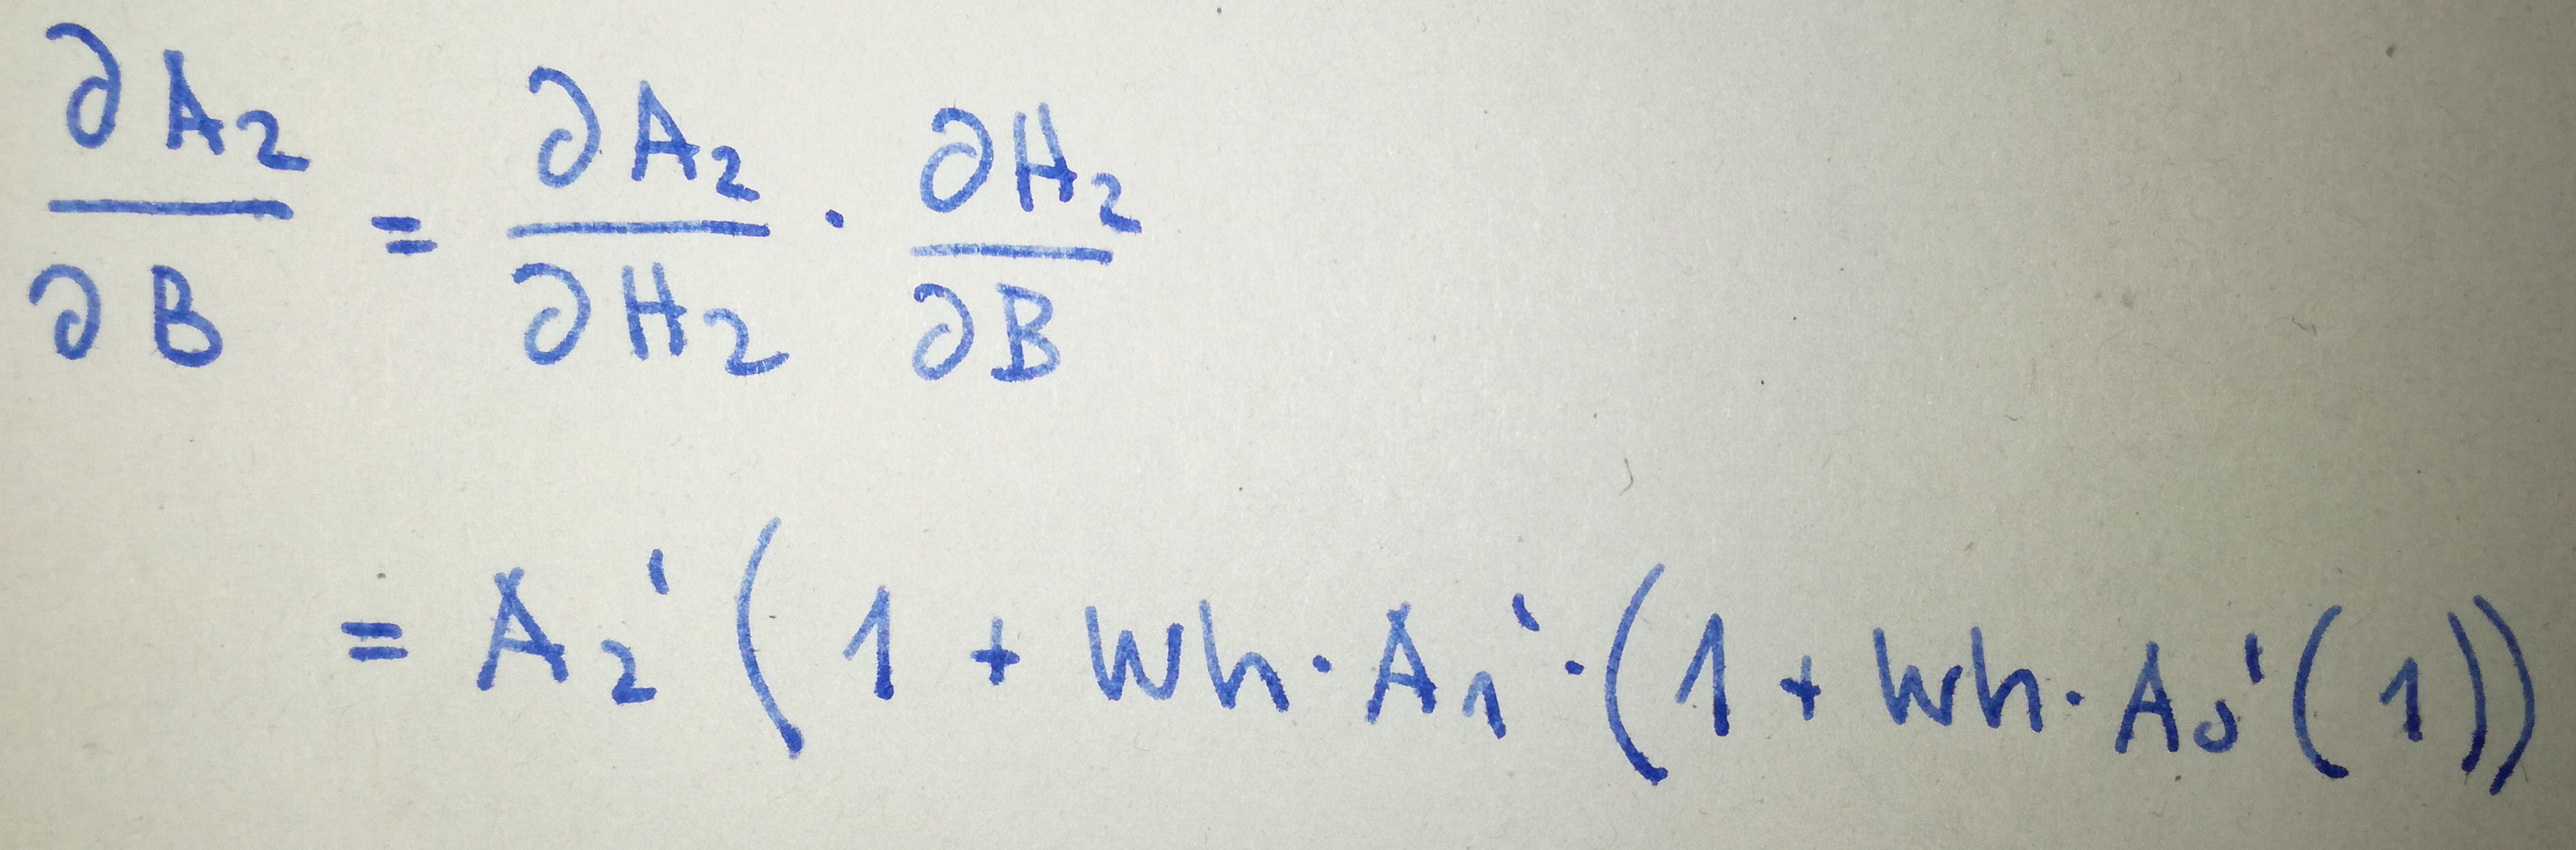 ∂A₂/∂B = ∂A₂/∂H₂ · ∂H₂/∂B
= A₂' ( 1 + Wh · A₁' · ( 1 + Wh · A₀' ( 1 ))